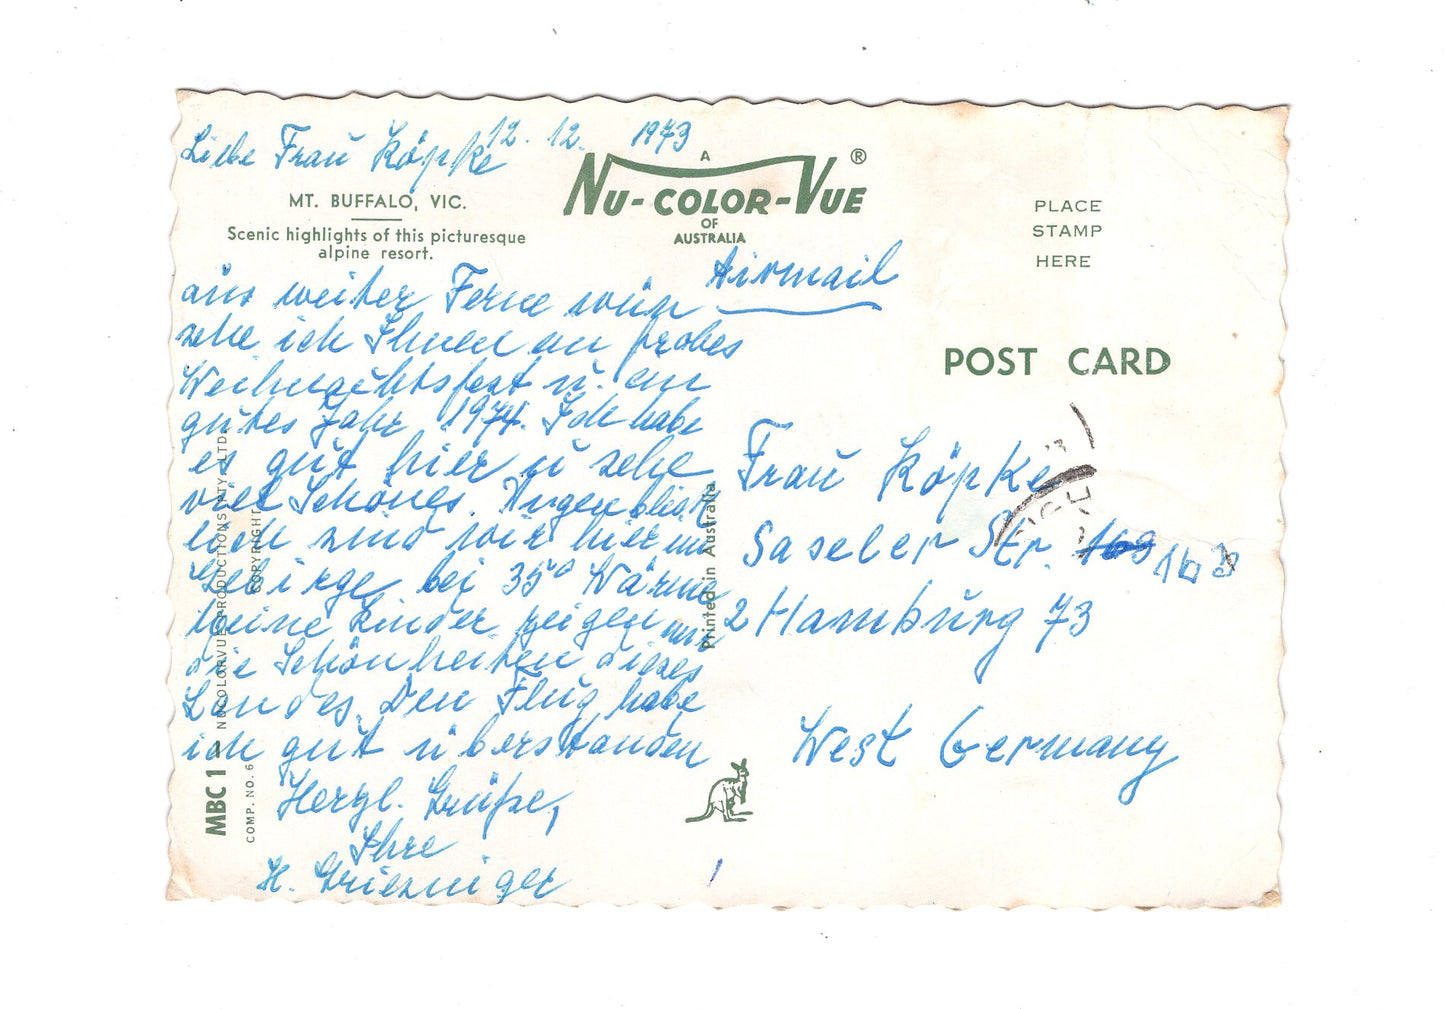 Liebe Frau Köpke 12. 12. 1973
MT. BUFFALO, VIC.
Scenic highlights of this picturesque
alpine resort.
A
NU-COLOR-VUE ®
OF
AUSTRALIA
PLACE
STAMP
HERE
Airmail
POST CARD
aus weiter Ferne wün
sche ich Ihnen ein frohes
Weihnachtsfest u. ein
gutes Jahr 1974. Ich habe
es gut hier u sehe
viel Schönes. Augenblick
lich sind wir hier im
Gebirge bei 35° Wärme
Meine Kinder zeigen mir
die Schönheiten dieses
Landes. Den Flug habe
ich gut überstanden
Herzl. Grüße,
Ihre
H.
Frau Köpke
Saseler Str. 169 163
2 Hamburg 73
West Germany
MBC 1
NUCOLORVUE PRODUCTIONS PTY. LTD.
COPYRIGHT
COMP. NO. 6
Printed in Australia